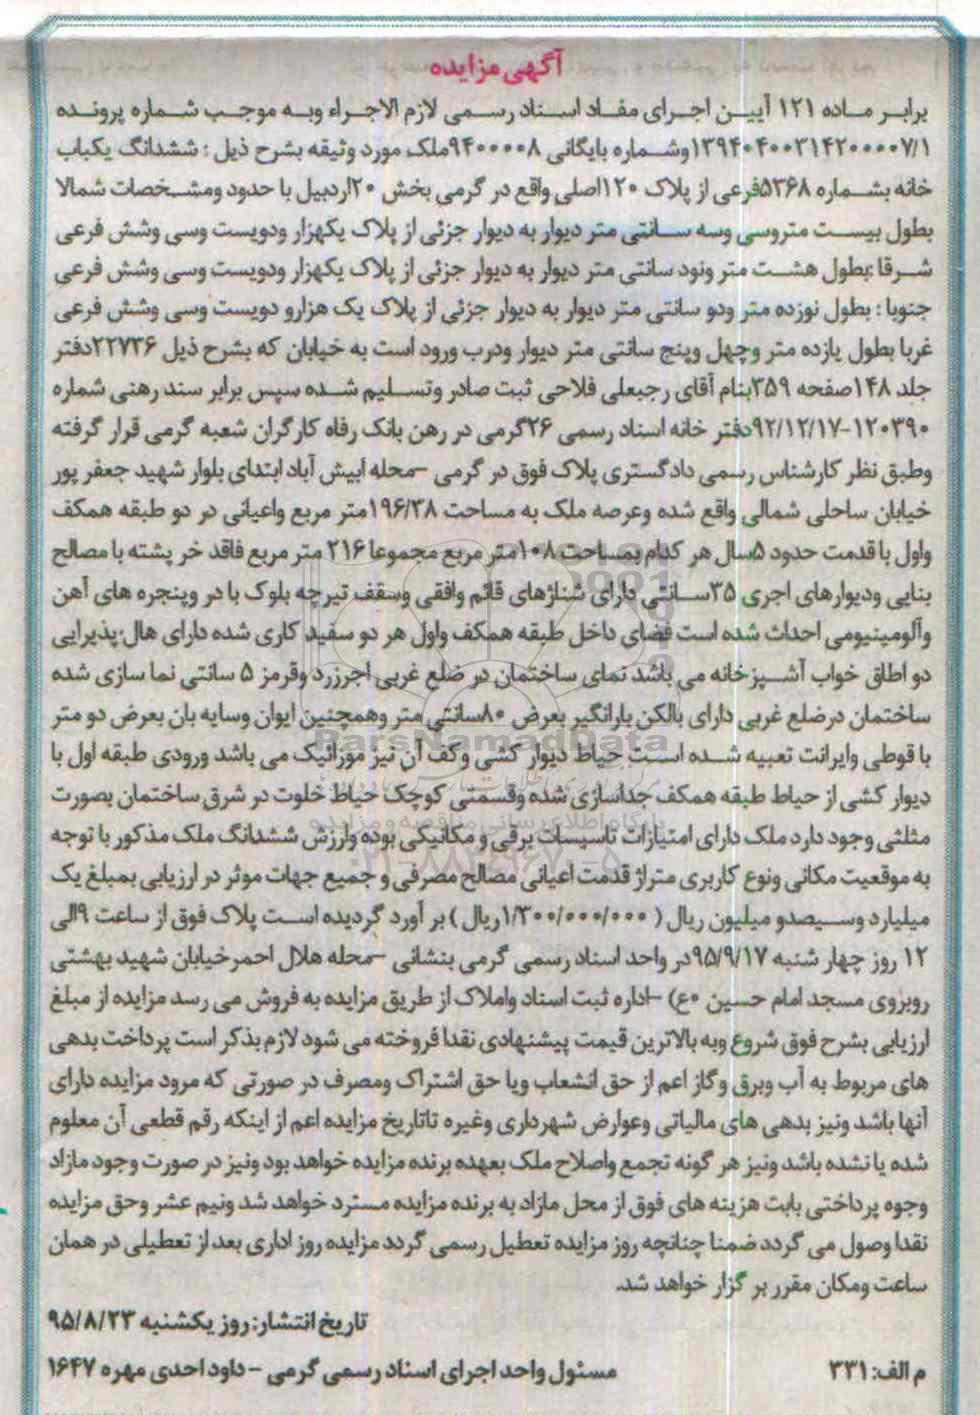 آگهی مزایده
برابر ماده ۱۲۱ آیین اجرای مفاد اسناد رسمی لازم الاجراء وبه موجب شماره پرونده
۱۳۹۴۰۴۰۰۳۱۴۲۰۰۰۰۷/۱وشماره بایگانی ۹۴۰۰۰۰۸ملک مورد وثیقه بشرح ذیل : ششدانگ یکباب
خانه بشماره ۵۳۶۸فرعی از پلاک ۱۲۰اصلی واقع در گرمی بخش ۲۰اردبیل با حدود ومشخصات شمالا
بطول بیست متروسی وسه سانتی متر دیوار به دیوار جزئی از پلاک یکهزار ودویست وسی وشش فرعی
شرقا :بطول هشت متر ونود سانتی متر دیوار به دیوار جزئی از پلاک یکهزار ودویست وسی وشش فرعی
جنوبا : بطول نوزده متر ودو سانتی متر دیوار به دیوار جزئی از پلاک یک هزارو دویست وسی وشش فرعی
غربا بطول یازده متر وچهل وپنج سانتی متر دیوار ودرب ورود است به خیابان که بشرح ذیل ۲۲۷۳۶دفتر
جلد ۱۴۸صفحه ۳۵۹بنام آقای رجبعلی فلاحی ثبت صادر وتسلیم شده سپس برابر سند رهنی شماره
۱۲۰۳۹۰-۹۲/۱۲/۱۷دفتر خانه اسناد رسمی ۲۶گرمی در رهن بانک رفاه کارگران شعبه گرمی قرار گرفته
وطبق نظر کارشناس رسمی دادگستری پلاک فوق در گرمی –محله ابیش آباد ابتدای بلوار شهید جعفر پور
خیابان ساحلی شمالی واقع شده وعرصه ملک به مساحت ۱۹۶/۳۸متر مربع واعیانی در دو طبقه همکف
واول با قدمت حدود ۵سال هر کدام بمساحت ۱۰۸متر مربع مجموعا ۲۱۶ متر مربع فاقد خر پشته با مصالح
بنایی ودیوارهای اجری ۳۵سانتی دارای شناژهای قائم وافقی وسقف تیرچه بلوک با در وپنجره های آهن
وآلومینیومی احداث شده است فضای داخل طبقه همکف واول هر دو سفید کاری شده دارای هال؛پذیرایی
دو اطاق خواب آشپزخانه می باشد نمای ساختمان در ضلع غربی اجرزرد وقرمز ۵ سانتی نما سازی شده
ساختمان درضلع غربی دارای بالکن بارانگیر بعرض ۸۰سانتی متر وهمچنین ایوان وسایه بان بعرض دو متر
با قوطی وایرانت تعبیه شده است حیاط دیوار کشی وکف آن نیز موزائیک می باشد ورودی طبقه اول با
دیوار کشی از حیاط طبقه همکف جداسازی شده وقسمتی کوچک حیاط خلوت در شرق ساختمان بصورت
مثلثی وجود دارد ملک دارای امتیازات تاسیسات برقی و مکانیکی بوده وارزش ششدانگ ملک مذکور با توجه
به موقعیت مکانی ونوع کاربری متراژ قدمت اعیانی مصالح مصرفی و جمیع جهات موثر در ارزیابی بمبلغ یک
میلیارد وسیصدو میلیون ریال ( ۱/۳۰۰/۰۰۰/۰۰۰ریال ) بر آورد گردیده است پلاک فوق از ساعت ۹الی
۱۲ روز چهار شنبه ۹۵/۹/۱۷در واحد اسناد رسمی گرمی بنشانی –محله هلال احمرخیابان شهید بهشتی
روبروی مسجد امام حسین ۰ع) –اداره ثبت اسناد واملاک از طریق مزایده به فروش می رسد مزایده از مبلغ
ارزیابی بشرح فوق شروع وبه بالاترین قیمت پیشنهادی نقدا فروخته می شود لازم بذکر است پرداخت بدهی
های مربوط به آب وبرق وگاز اعم از حق انشعاب ویا حق اشتراک ومصرف در صورتی که مرود مزایده دارای
آنها باشد ونیز بدهی های مالیاتی وعوارض شهرداری وغیره تاتاریخ مزایده اعم از اینکه رقم قطعی آن معلوم
شده یا نشده باشد ونیز هر گونه تجمع واصلاح ملک بعهده برنده مزایده خواهد بود ونیز در صورت وجود مازاد
وجوه پرداختی بابت هزینه های فوق از محل مازاد به برنده مزایده مسترد خواهد شد ونیم عشر وحق مزایده
نقدا وصول می گردد ضمنا چنانچه روز مزایده تعطیل رسمی گردد مزایده روز اداری بعد از تعطیلی در همان
ساعت ومکان مقرر بر گزار خواهد شد.
تاریخ انتشار: روز یکشنبه ۹۵/۸/۲۳
م الف: ۳۳۱ مسئول واحد اجرای اسناد رسمی گرمی – داود احدی مهره ۱۶۴۷
ParsNamadData
پایگاه اطلاع رسانی مناقصه و مزایده
۰۲۱-۸۸۳۴۹۶۷۰-۵